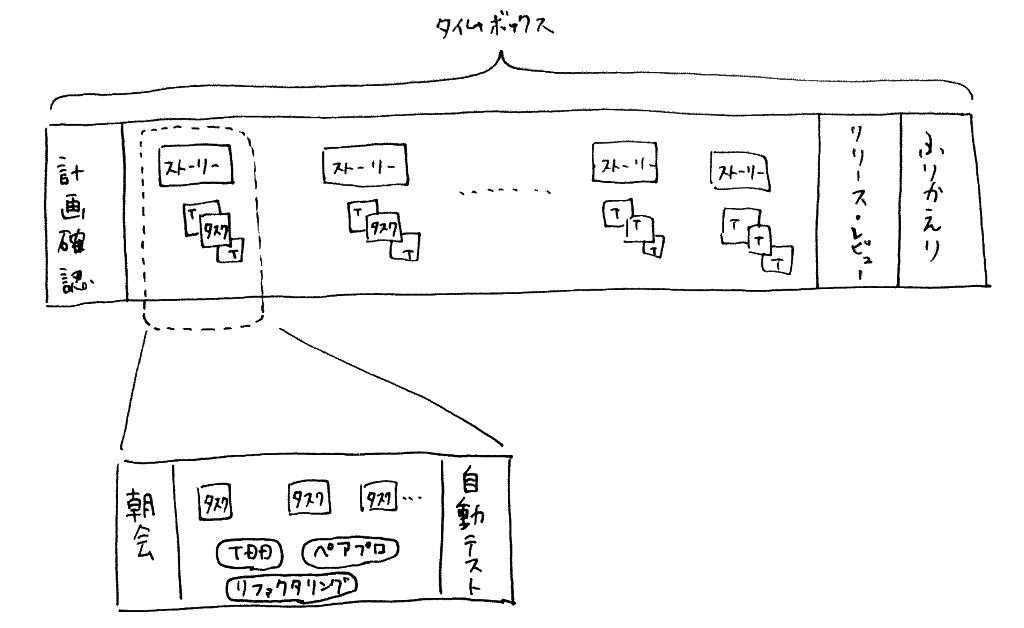 タイムボックス
計画確認
ストーリー
T
タスク
T
ストーリー
T
タスク
T
.........
ストーリー
T
T
T
ストーリー
T
T
T
リリース・レビュー
ふりかえり
朝会
タスク
タスク
タスク...
TDD
ペアプロ
リファクタリング
自動テスト